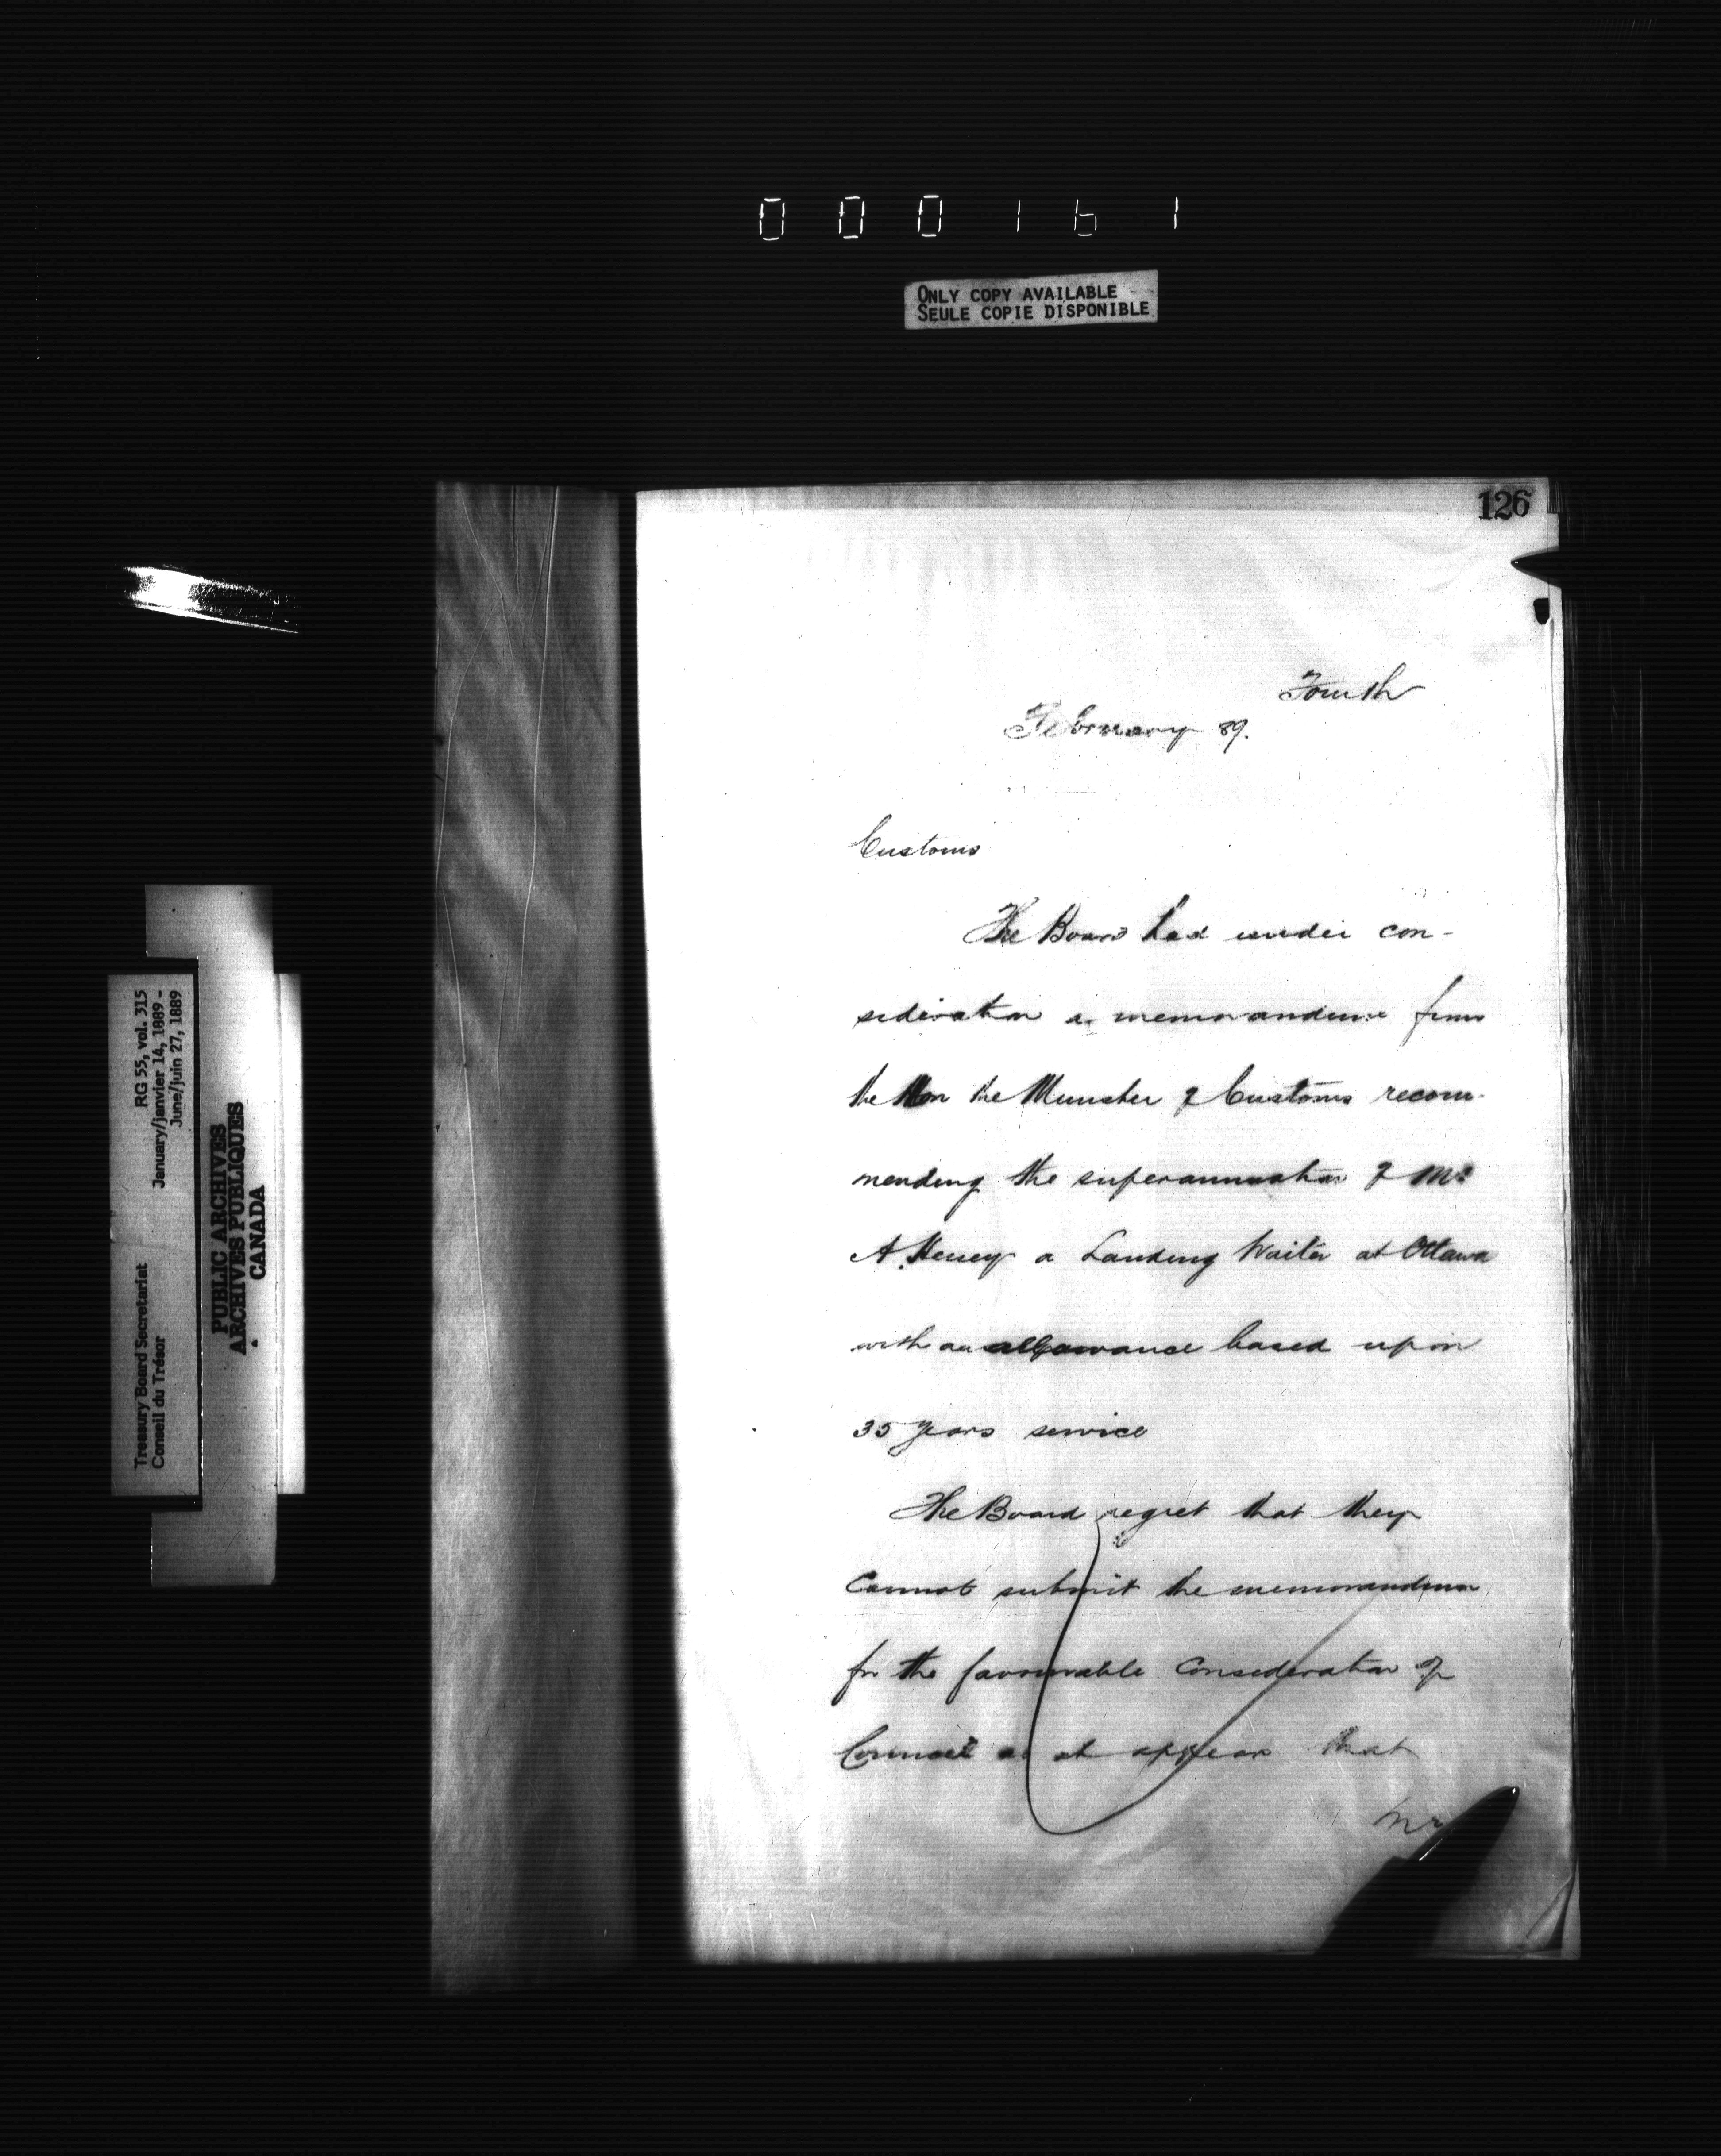 000161
ONLY COPY AVAILABLE
SEULE COPIE DISPONIBLE
Treasury Board Secretariat RG 55, vol. 315
Conseil du Trésor January/janvier 14, 1889 -
June/juin 27, 1889
PUBLIC ARCHIVES
ARCHIVES PUBLIQUES
CANADA
126
Fourth
February 89.
Customs
The Board had under con-
sideration a memorandum from
the Hon the Minister of Customs recom-
mending the superannuation of Mr
A. a Landing Waiter at Ottawa
with an allowance based upon
35 years service
The Board regret that they
Cannot submit the memorandum
for the favourable Consideration of
Council as it appears that
Mr